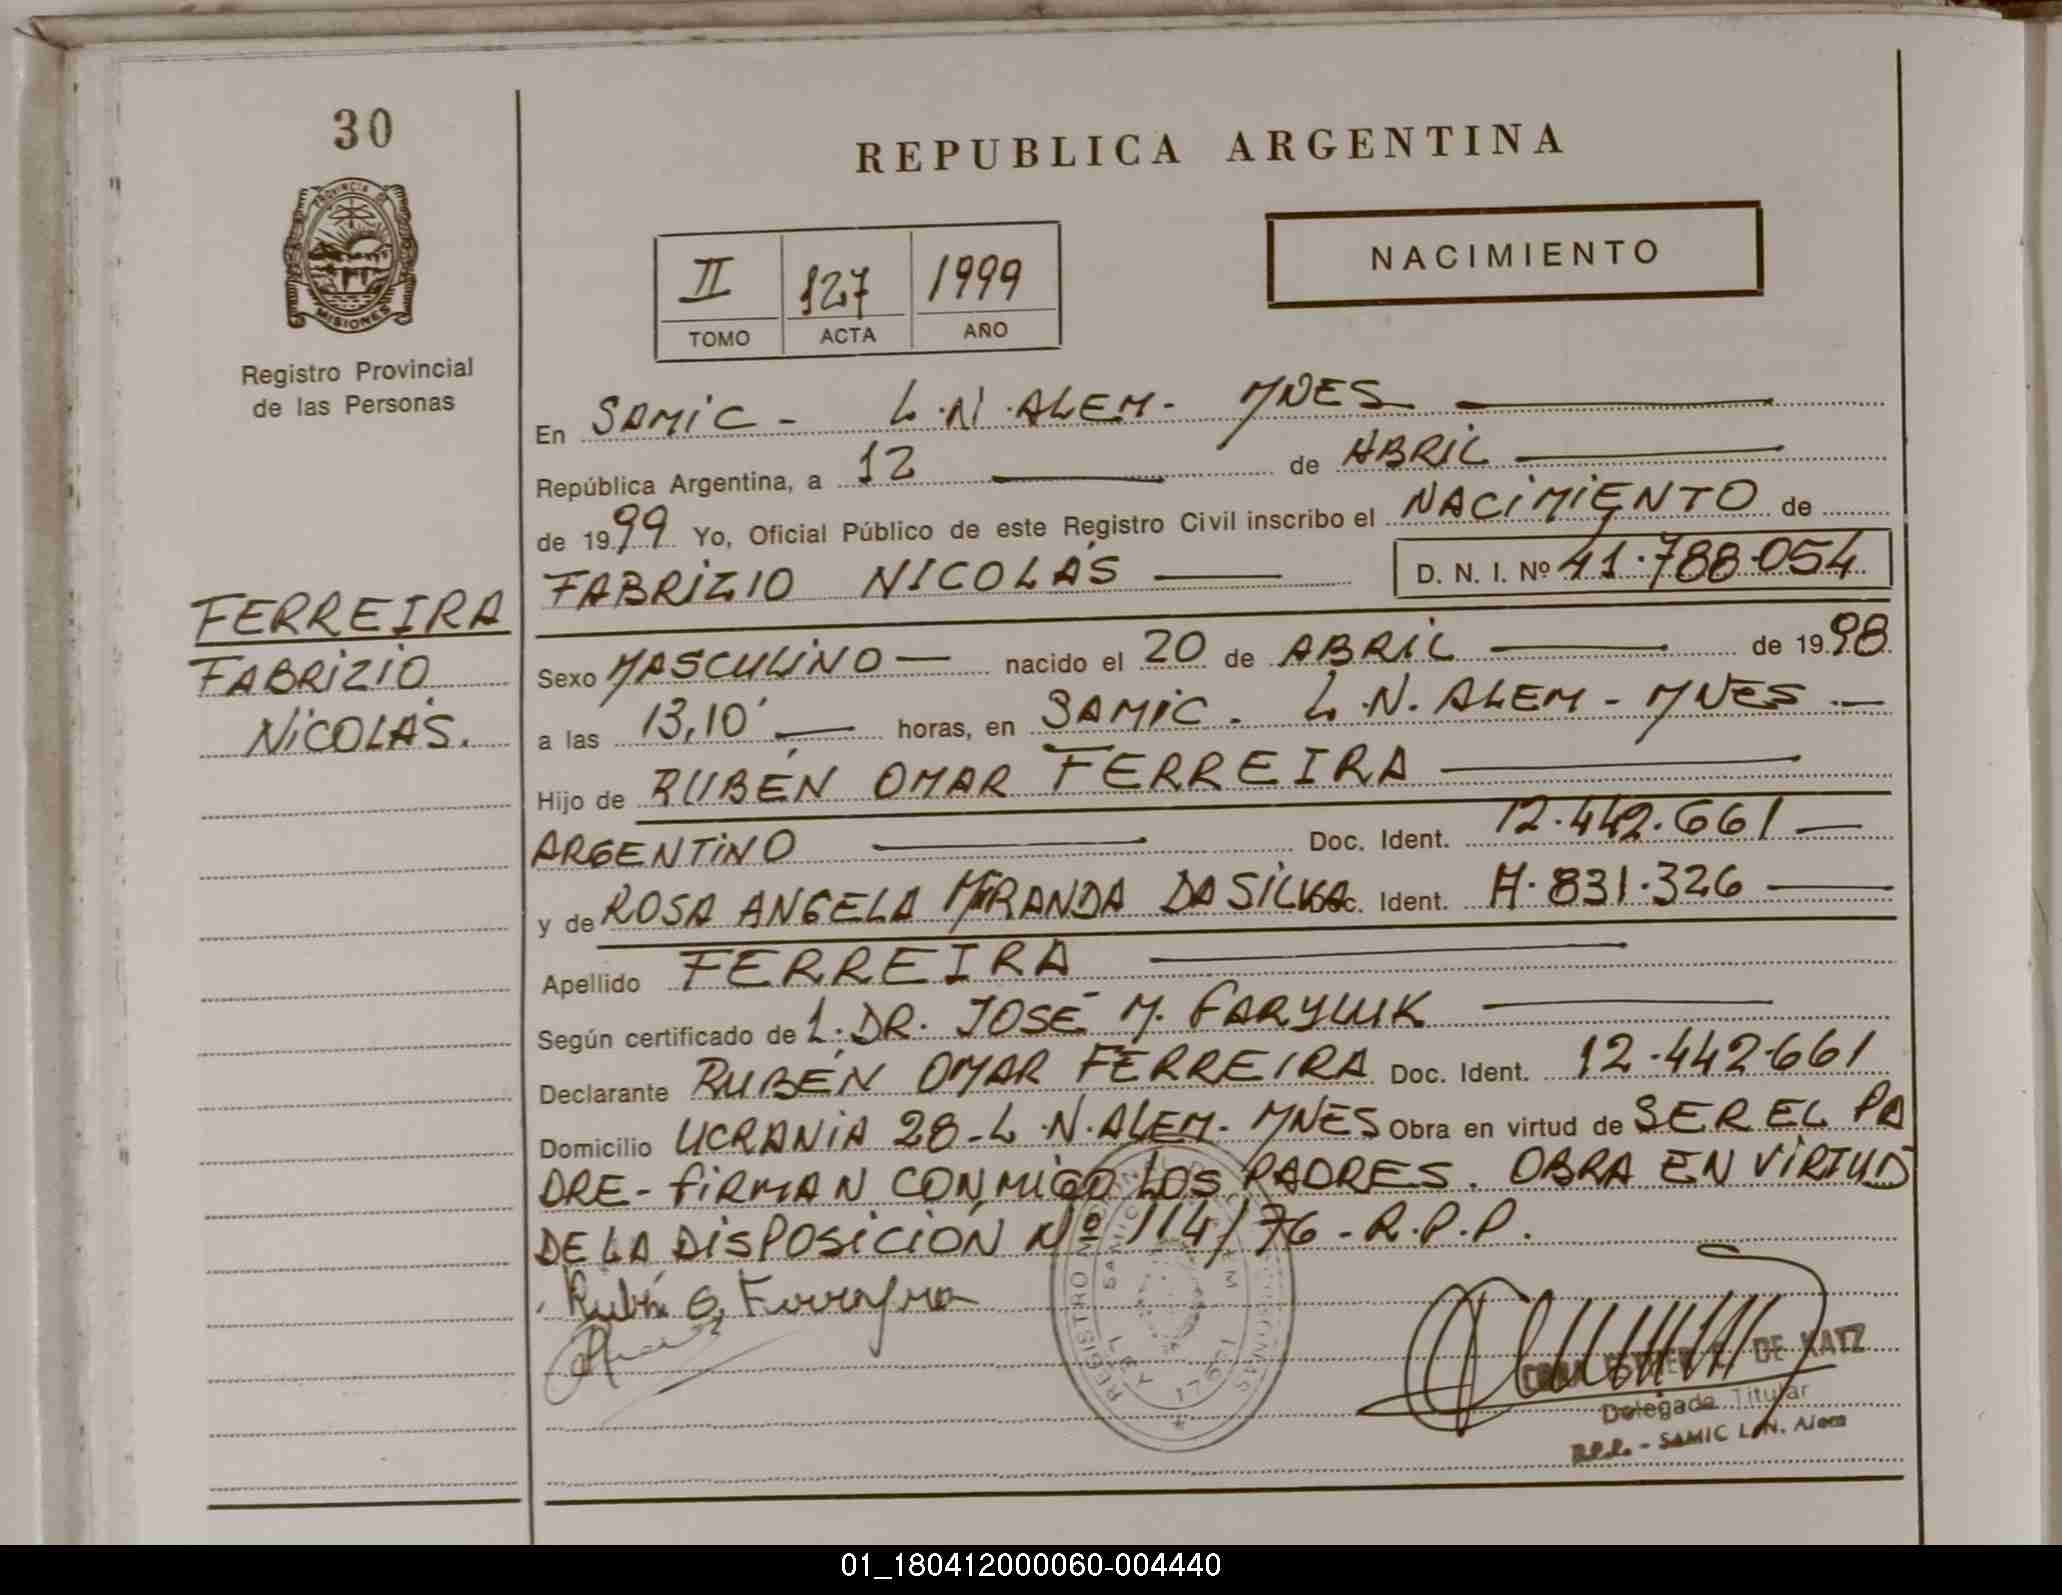 30
REPUBLICA ARGENTINA
PROVINCIA DE
MISIONES
Registro Provincial
de las Personas
NACIMIENTO
II 127 1999
TOMO ACTA AÑO
En SAMIC - L.N. ALEM - MNES
República Argentina, a 12 de ABRIL
de 1999 Yo, Oficial Público de este Registro Civil inscribo el NACIMIENTO de
FABRIZIO NICOLÁS D. N. I. Nº 41.788.054
FERREIRA
FABRIZIO
NICOLÁS.
Sexo MASCULINO nacido el 20 de ABRIL de 1998
a las 13,10' horas, en SAMIC. L.N. ALEM - MNES
Hijo de RUBÉN OMAR FERREIRA
ARGENTINO Doc. Ident. 12.442.661
y de ROSA ANGELA MIRANDA DA SILVA Doc. Ident. H.831.326
Apellido FERREIRA
Según certificado de L. DR. JOSÉ M. FARYLUK
Declarante RUBÉN OMAR FERREIRA Doc. Ident. 12.442.661
Domicilio UCRANIA 28 - L.N. ALEM - MNES Obra en virtud de SER EL PA
DRE - FIRMAN CONMIGO LOS PADRES. OBRA EN VIRTUD
DE LA DISPOSICIÓN Nº 114/76 - R.P.P.
Rubén O. Ferreyra
REGISTRO
SAMIC
LEY
DE KATZ
Delegada Titular
R.P.P. - SAMIC L.N. Alem
01_180412000060-004440